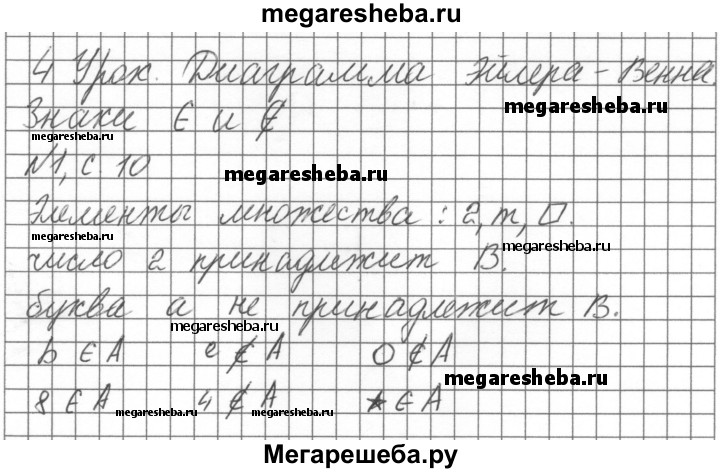 megaresheba.ru
4 Урок. Диаграмма Эйлера – Венна.
megaresheba.ru
Знаки ∈ и ∉
megaresheba.ru
№1, с. 10
megaresheba.ru
Элементы множества: 2, т, □.
megaresheba.ru
megaresheba.ru
число 2 принадлежит В.
буква а не принадлежит В.
megaresheba.ru
b ∈ А   е ∉ А   О ∉ А
megaresheba.ru
8 ∈ А   4 ∉ А   ★ ∈ А
megaresheba.ru   megaresheba.ru
Мегарешеба.ру